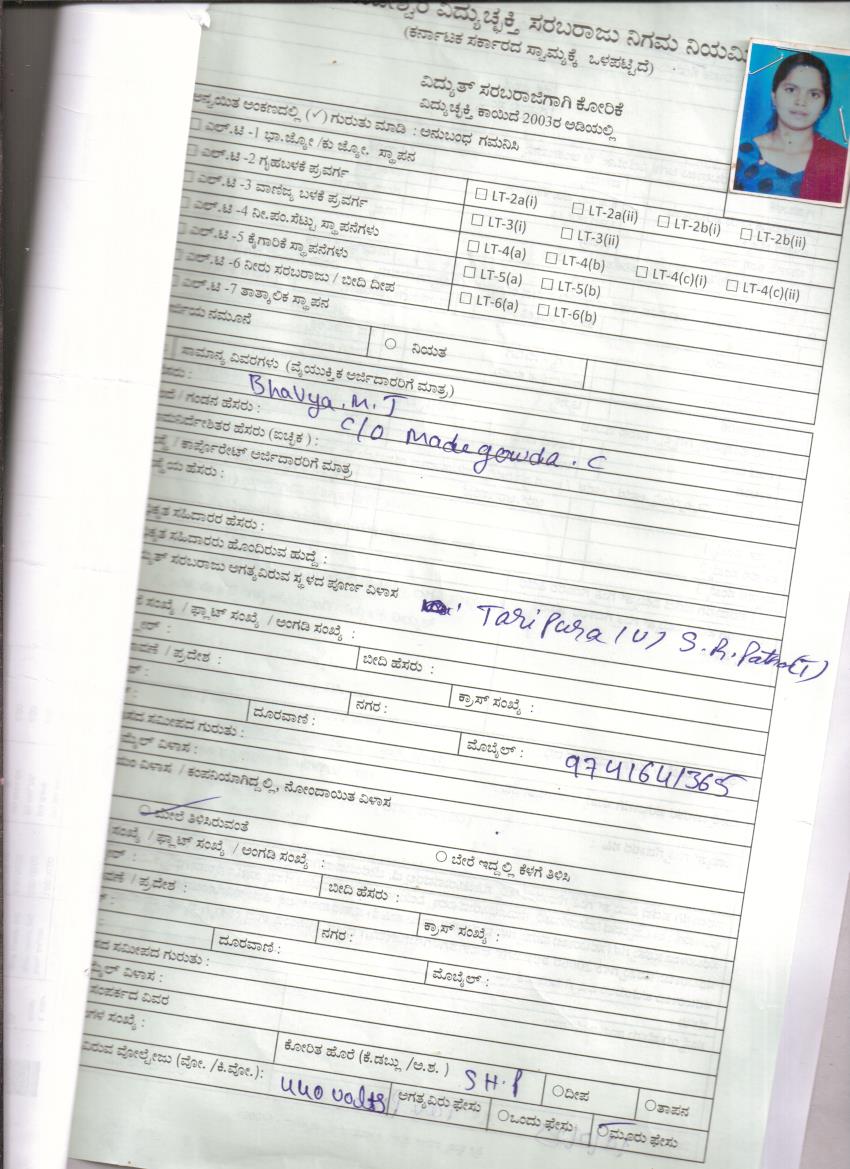 ವಿದ್ಯುಚ್ಛಕ್ತಿ ಸರಬರಾಜು ನಿಗಮ ನಿಯಮಿ
(ಕರ್ನಾಟಕ ಸರ್ಕಾರದ ಸ್ವಾಮ್ಯಕ್ಕೆ ಒಳಪಟ್ಟಿದೆ)
ವಿದ್ಯುತ್ ಸರಬರಾಜಿಗಾಗಿ ಕೋರಿಕೆ
ವಿದ್ಯುಚ್ಛಕ್ತಿ ಕಾಯಿದೆ 2003ರ ಅಡಿಯಲ್ಲಿ
ಅನ್ವಯಿತ ಅಂಕಣದಲ್ಲಿ (✓) ಗುರುತು ಮಾಡಿ : ಅನುಬಂಧ ಗಮನಿಸಿ
ಎಲ್.ಟಿ -1 ಭಾ.ಜ್ಯೋ /ಕು ಜ್ಯೋ. ಸ್ಥಾಪನ
ಎಲ್.ಟಿ -2 ಗೃಹಬಳಕೆ ಪ್ರವರ್ಗ ☐ LT-2a(i) ☐ LT-2a(ii) ☐ LT-2b(i) ☐ LT-2b(ii)
ಎಲ್.ಟಿ -3 ವಾಣಿಜ್ಯ ಬಳಕೆ ಪ್ರವರ್ಗ ☐ LT-3(i) ☐ LT-3(ii)
ಎಲ್.ಟಿ -4 ನೀ.ಪಂ.ಸೆಟ್ಟು ಸ್ಥಾಪನೆಗಳು ☐ LT-4(a) ☐ LT-4(b) ☐ LT-4(c)(i) ☐ LT-4(c)(ii)
ಎಲ್.ಟಿ -5 ಕೈಗಾರಿಕೆ ಸ್ಥಾಪನೆಗಳು ☐ LT-5(a) ☐ LT-5(b)
ಎಲ್.ಟಿ -6 ನೀರು ಸರಬರಾಜು / ಬೀದಿ ದೀಪ ☐ LT-6(a) ☐ LT-6(b)
ಎಲ್.ಟಿ -7 ತಾತ್ಕಾಲಿಕ ಸ್ಥಾಪನ
ನಮೂನೆ ನಿಯತ
ಸಾಮಾನ್ಯ ವಿವರಗಳು (ವೈಯುಕ್ತಿಕ ಅರ್ಜಿದಾರರಿಗೆ ಮಾತ್ರ)
Bhavya.M.J
/ ಗಂಡನ ಹೆಸರು : C/O Madegowda.C
ಹೆಸರು (ಐಚ್ಛಿಕ) :
/ ಕಾರ್ಪೊರೇಟ್ ಅರ್ಜಿದಾರರಿಗೆ ಮಾತ್ರ
ಹೆಸರು :
ಸಹಿದಾರರ ಹೆಸರು :
ಸಹಿದಾರರು ಹೊಂದಿರುವ ಹುದ್ದೆ :
ಸರಬರಾಜು ಅಗತ್ಯವಿರುವ ಸ್ಥಳದ ಪೂರ್ಣ ವಿಳಾಸ
ಸಂಖ್ಯೆ / ಫ್ಲಾಟ್ ಸಂಖ್ಯೆ / ಅಂಗಡಿ ಸಂಖ್ಯೆ : Taripura (V)
/ ಪ್ರದೇಶ : ಬೀದಿ ಹೆಸರು :
ನಗರ : ಕ್ರಾಸ್ ಸಂಖ್ಯೆ :
ಸಮೀಪದ ಗುರುತು : ದೂರವಾಣಿ : ಮೊಬೈಲ್ : 9741641365
ವಿಳಾಸ :
ವಿಳಾಸ / ಕಂಪನಿಯಾಗಿದ್ದಲ್ಲಿ, ನೋಂದಾಯಿತ ವಿಳಾಸ
ಮೇಲೆ ತಿಳಿಸಿರುವಂತೆ ಬೇರೆ ಇದ್ದಲ್ಲಿ ಕೆಳಗೆ ತಿಳಿಸಿ
ಸಂಖ್ಯೆ / ಫ್ಲಾಟ್ ಸಂಖ್ಯೆ / ಅಂಗಡಿ ಸಂಖ್ಯೆ :
/ ಪ್ರದೇಶ : ಬೀದಿ ಹೆಸರು :
ನಗರ : ಕ್ರಾಸ್ ಸಂಖ್ಯೆ :
ಸಮೀಪದ ಗುರುತು : ದೂರವಾಣಿ : ಮೊಬೈಲ್ :
ವಿಳಾಸ :
ಸಂಪರ್ಕದ ವಿವರ
ಸಂಖ್ಯೆ : ಕೋರಿತ ಹೊರೆ (ಕೆ.ಡಬ್ಲು /ಅ.ಶ. ) 5 H.P ದೀಪ ತಾಪನ
ವೋಲ್ಟೇಜು (ವೋ. /ಕಿ.ವೋ.): 440 volts ಅಗತ್ಯವಿರು ಫೇಸು ಒಂದು ಫೇಸು ಮೂರು ಫೇಸು